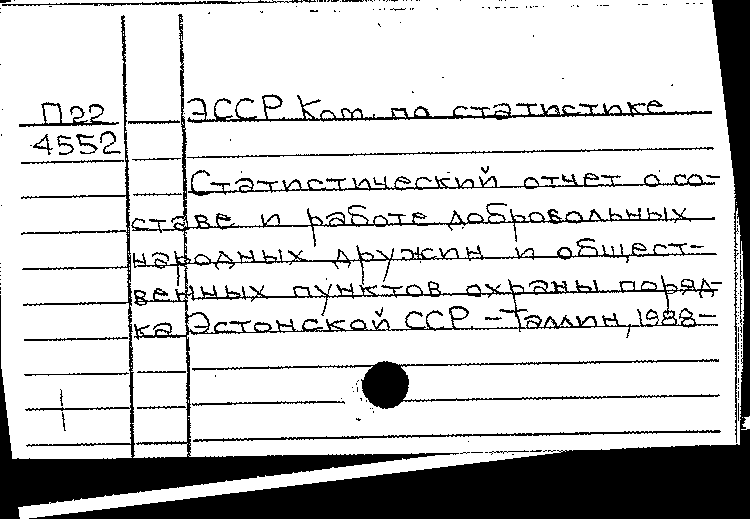 П22 ЭССР. Ком. по статистике
4552
Статистический отчет о со-
ставе и работе добровольных
народных дружин и общест-
венных пунктов охраны поряд-
ка Эстонской ССР. – Таллин, 1988–